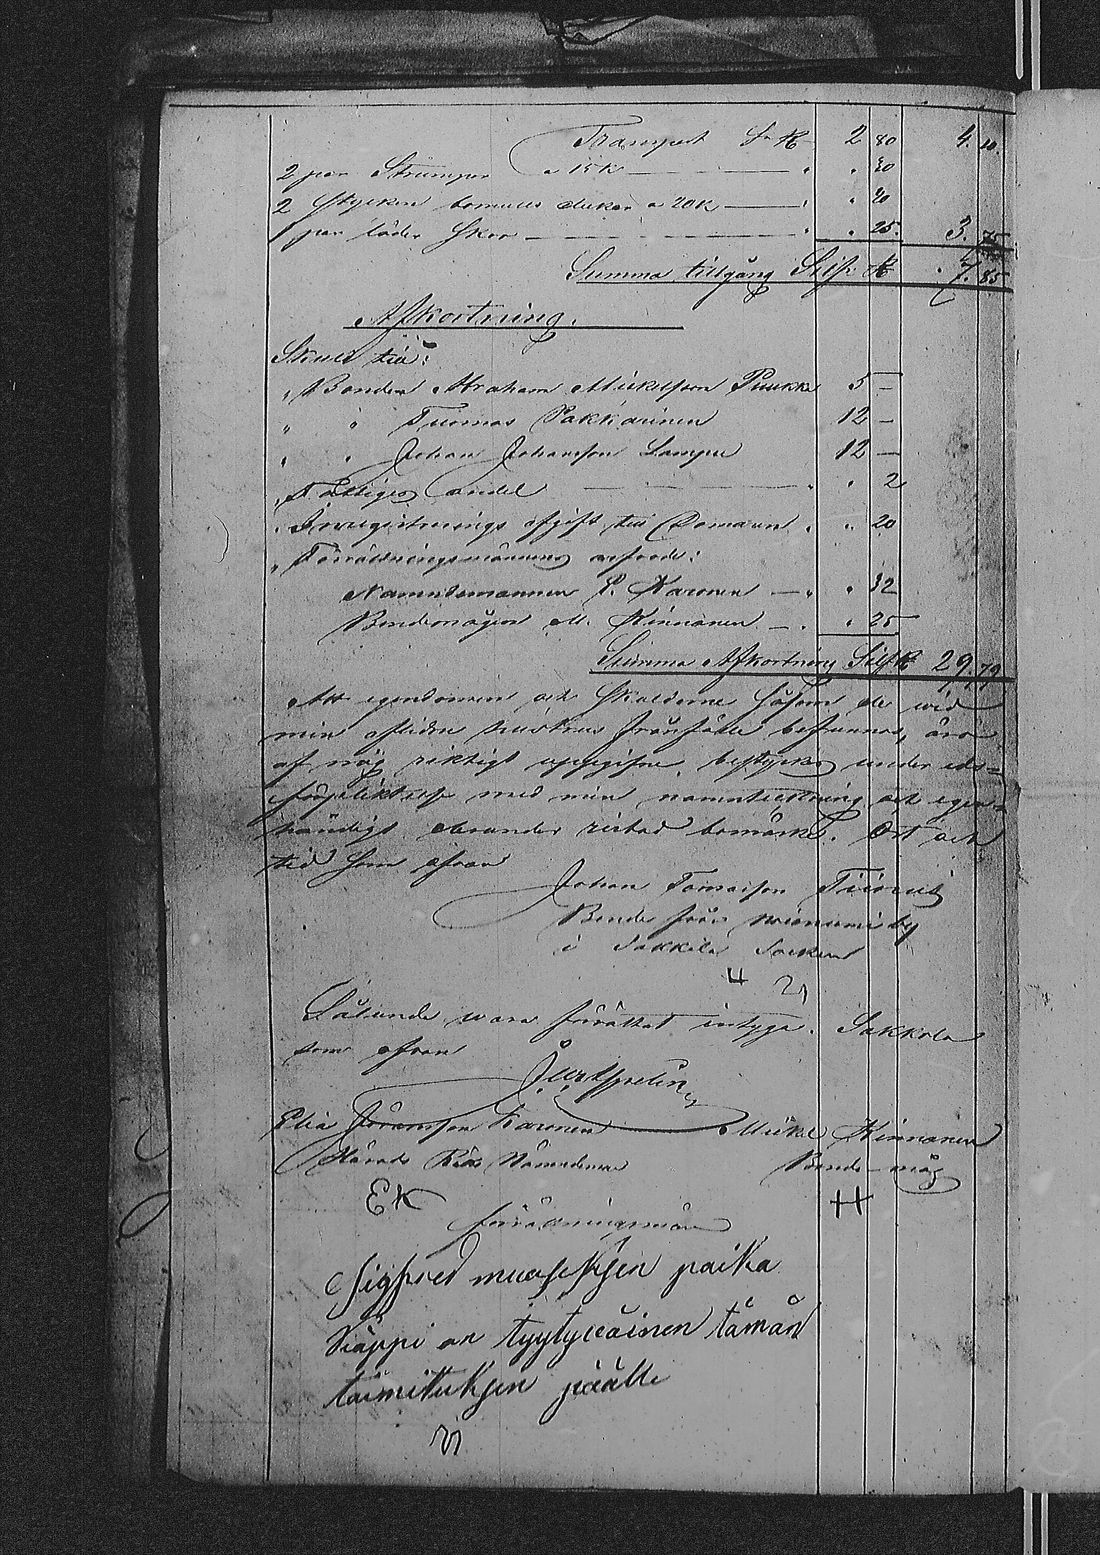 Transport S:r R 2 80 4. 10.
2 par Strumpor a 15 K — " " 30
2 stycken bomulls dukar a 20 K — " " 40
1 par läder Skor — " " 25. 3. 75
Summa tillgång Silf: R " 7. 85
Afkortning.
Skuld till:
" Bonden Abraham Mickelsson Puukka 5 —
" " Tuomas Pakkarinen 12 —
" " Johan Johansson Lampu 12 —
" Fattiges andel — " " 2
" Inregistrerings afgift till Domaren " " 20
" Förrättningsmännens arfvode:
Nämndemannen E. Karonen — " " 32
Bondemågen M. Kinnanen — " " 25
Summa Afkortning Silf R 29. 79
Att egendomen och Skulderne såsom de wid
min aflidne hustrus frånfälle befunnos, äro
af mig riktigt uppgifne, bestyrkes under eds=
förpliktelse med min namnteckning och egen=
händigt derunder ristad bomärke. Ort och
tid som ofvan
Johan Tomasson
Bonde från by
i Sakkola Socken
Sålunda wara förrättat intyga. Sakkola
som ofvan
Elia Göransson Karonen Mickel Kinnanen
Härads Rätts Nämndeman Bonde-måg
EK H
förrättningsmän
Sigfred muaseksen paika
Siäppi on tyytyväinen tämän
toimituksen päälle